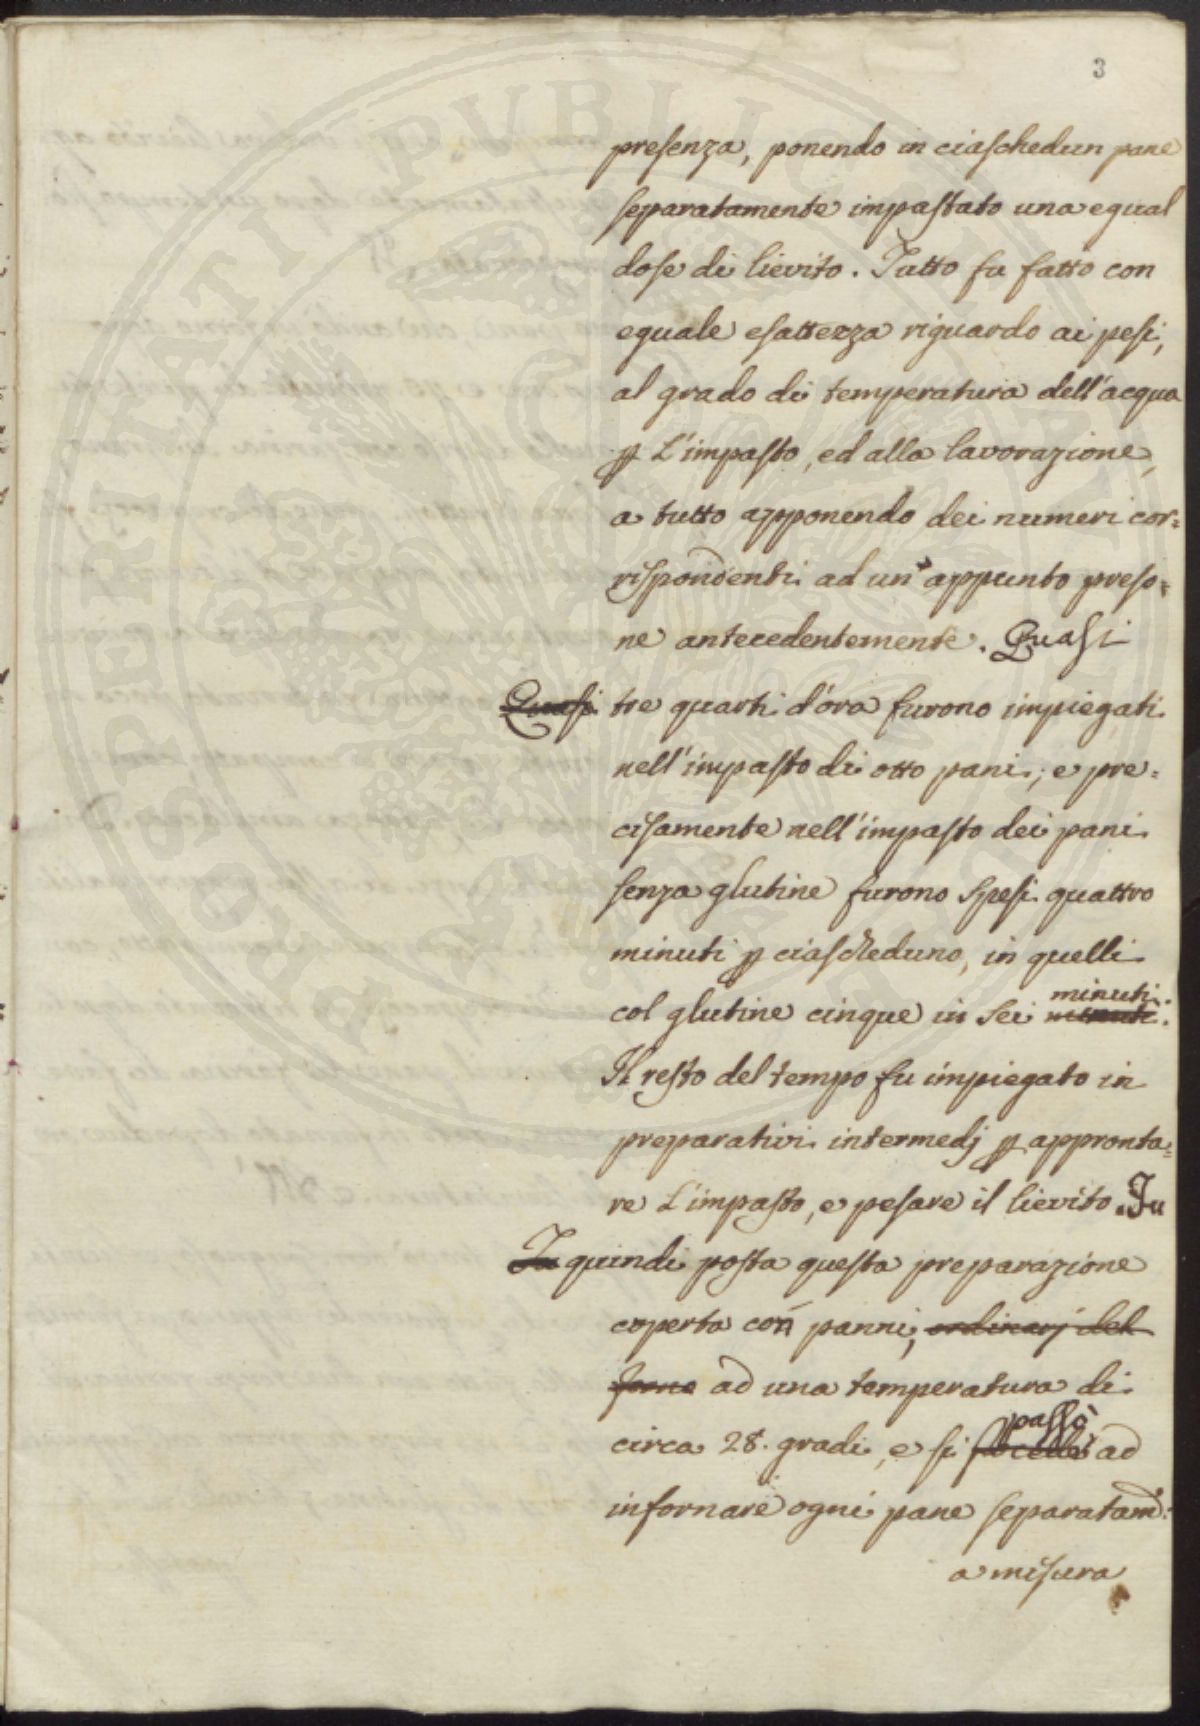 3
presenza, ponendo in ciaschedun pane
separatamente impastato una egual
dose di lievito. Tutto fu fatto con
eguale esattezza riguardo ai pesi,
al grado di temperatura dell'acqua
p l'impasto, ed alla lavorazione,
a tutto apponendo dei numeri cor=
rispondenti ad un appunto preso=
ne antecedentemente. Quasi
Quasi tre quarti d'ora furono impiegati
nell'impasto di otto pani; e pre=
cisamente nell'impasto dei pani
senza glutine furono spesi quattro
minuti p ciascheduno, in quelli
col glutine cinque in sei minuti minuti.
Il resto del tempo fu impiegato in
preparativi intermedj p appronta=
re l'impasto, e pesare il lievito. Fu
Fu quindi posta questa preparazione
coperta con panni, ordinarj del
forno ad una temperatura di
circa 28. gradi, e si passò ad
infornare ogni pane separatam:
a misura
PROSPERITATI PUBLICAE